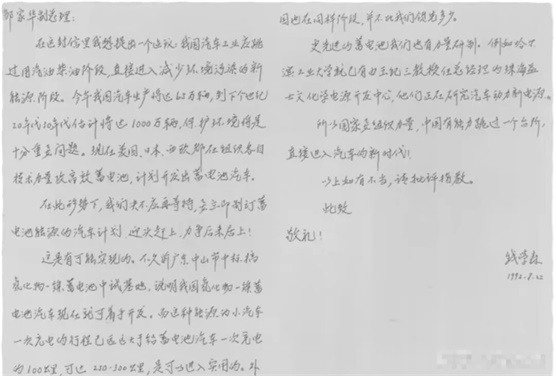 邹家华副总理：
在这封信里我想提出一个建议：我国汽车工业应跳
过用汽油柴油阶段，直接进入减少环境污染的新
能源阶段。今年我国汽车生产将达62万辆，到下个世纪
20年代30年代估计将达1000万辆，保护环境将是
十分重要问题。现在美国、日本、西欧都在组织各自
技术力量攻高效蓄电池，计划开发出蓄电池汽车。
在此形势下，我们决不应再等待，要立即制订蓄
电池能源的汽车计划，迎头赶上，力争后来居上！
这是有可能实现的。不久前广东中山市中标搞
氢化物—镍蓄电池中试基地，说明我国氢化物—镍蓄
蓄电池汽车现在就可着手开发。而这种能源的小汽车
一次充电的行程已远远大于铅蓄电池汽车一次充电
的100公里，可达250-300公里，是可以进入实用的。外
国也在同样阶段，并不比我们优先多少。
更先进的蓄电池我们也有力量研制。例如哈尔
滨工业大学就已有由王纪三教授任总经理的珠海益
士文化学电源开发中心，他们正在研究汽车动力新电源。
所以国家要组织力量，中国有能力跳过一个台阶，
直接进入汽车的新时代！
以上如有不当，请批评指教。
此致
敬礼！
钱学森
1992.8.22